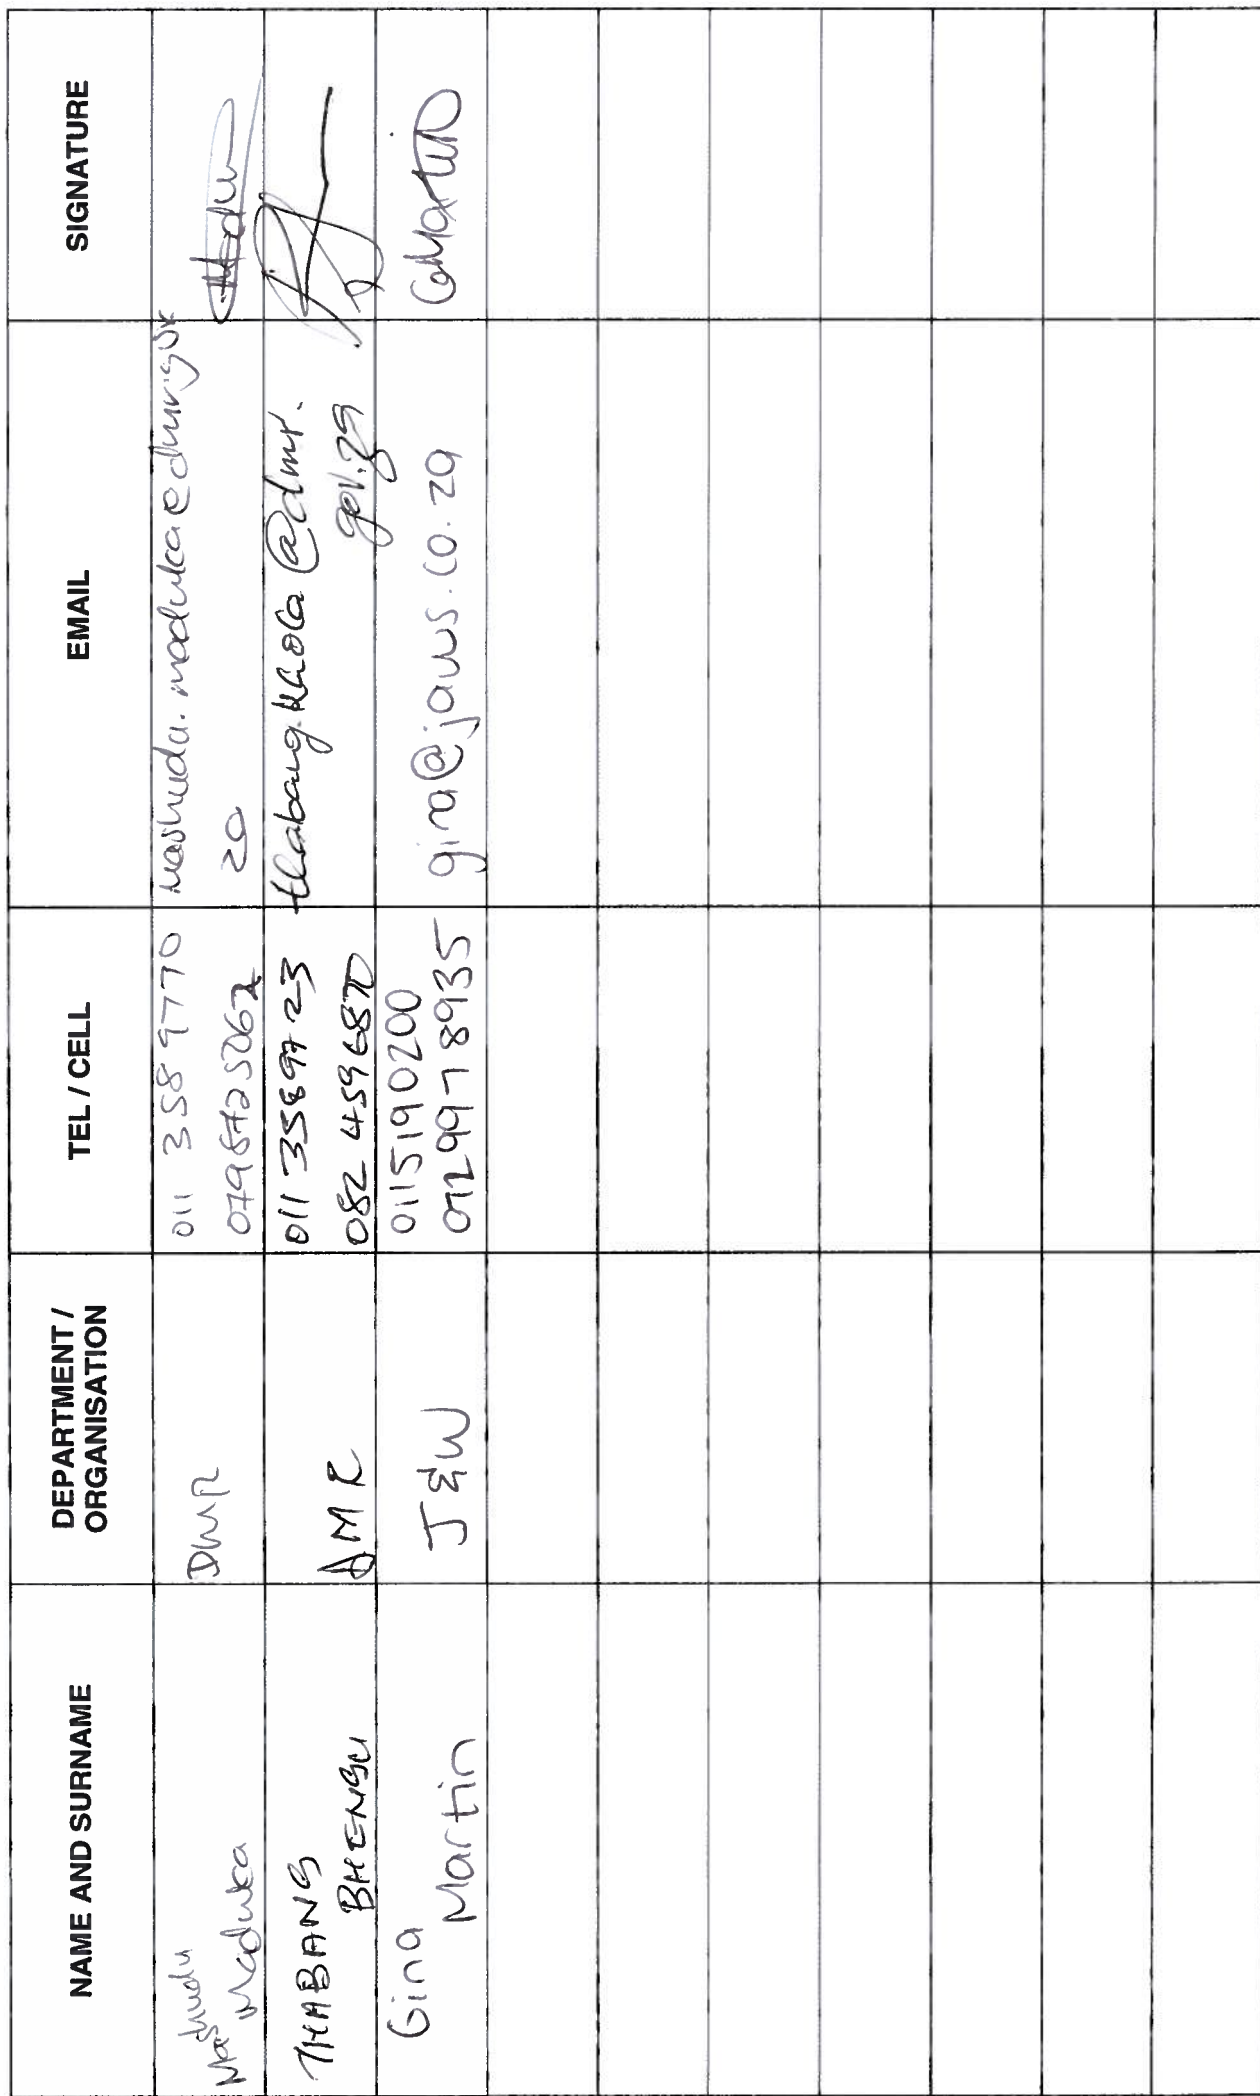 NAME AND SURNAME
DEPARTMENT /
ORGANISATION
TEL / CELL
EMAIL
SIGNATURE
Mashudu
Maduka
DMR
011 358 9770
mashudu.maduka@dmr.gov
za
THABANG
BHENGU
DMR
011 3589723
082 4596870
thabang.
@dmr.
gov.za
Gina
Martin
J&W
0115190200
0729978935
gina@jaws.co.za
GMartin